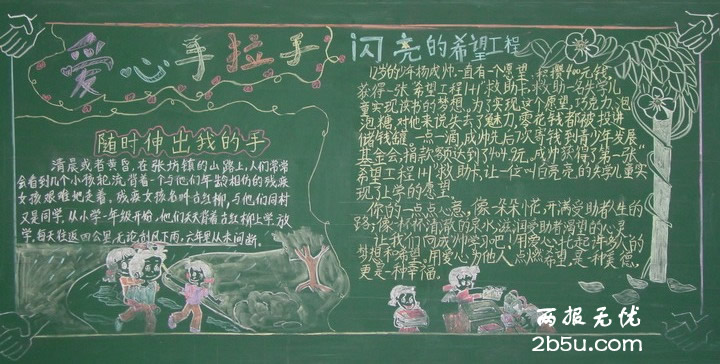 爱心手拉手
随时伸出我的手
清晨或者黄昏,在张坊镇的山路上,人们常常
会看到几个小孩轮流背着一个与他们年龄相仿的残疾
女孩艰难地走着,残疾女孩名叫古红柳,与他们同村
又是同学,从小学一年级开始,他们天天背着古红柳上学放
学,每天往返四公里,无论刮风下雨,六年里从未间断。
闪亮的希望工程
12岁的少年杨成帅一直有一个愿望:积攒400元钱,
获得一张"希望工程1+1"救助卡,救助一名失学儿
童实现读书的梦想。为了实现这个愿望,巧克力、泡
泡糖对他来说失去了魅力,零花钱都被投进
储钱罐。一点一滴,成帅先后7次寄钱到青少年发展
基金会,捐款额达到了 元。成帅获得了第一张"
希望工程1+1"救助卡,让一位叫白亮亮的失学儿童实
现了上学的愿望。
你的一点点心意,像一朵朵小花,开满受助者人生的
路;像一杯杯清澈的泉水,滋润受助者渴望的心灵。
让我们向成帅学习吧!用爱心托起许多人的
梦想和希望,用爱心为他人点燃希望,是一种美德,
更是一种幸福。
两报无优
2b5u.com